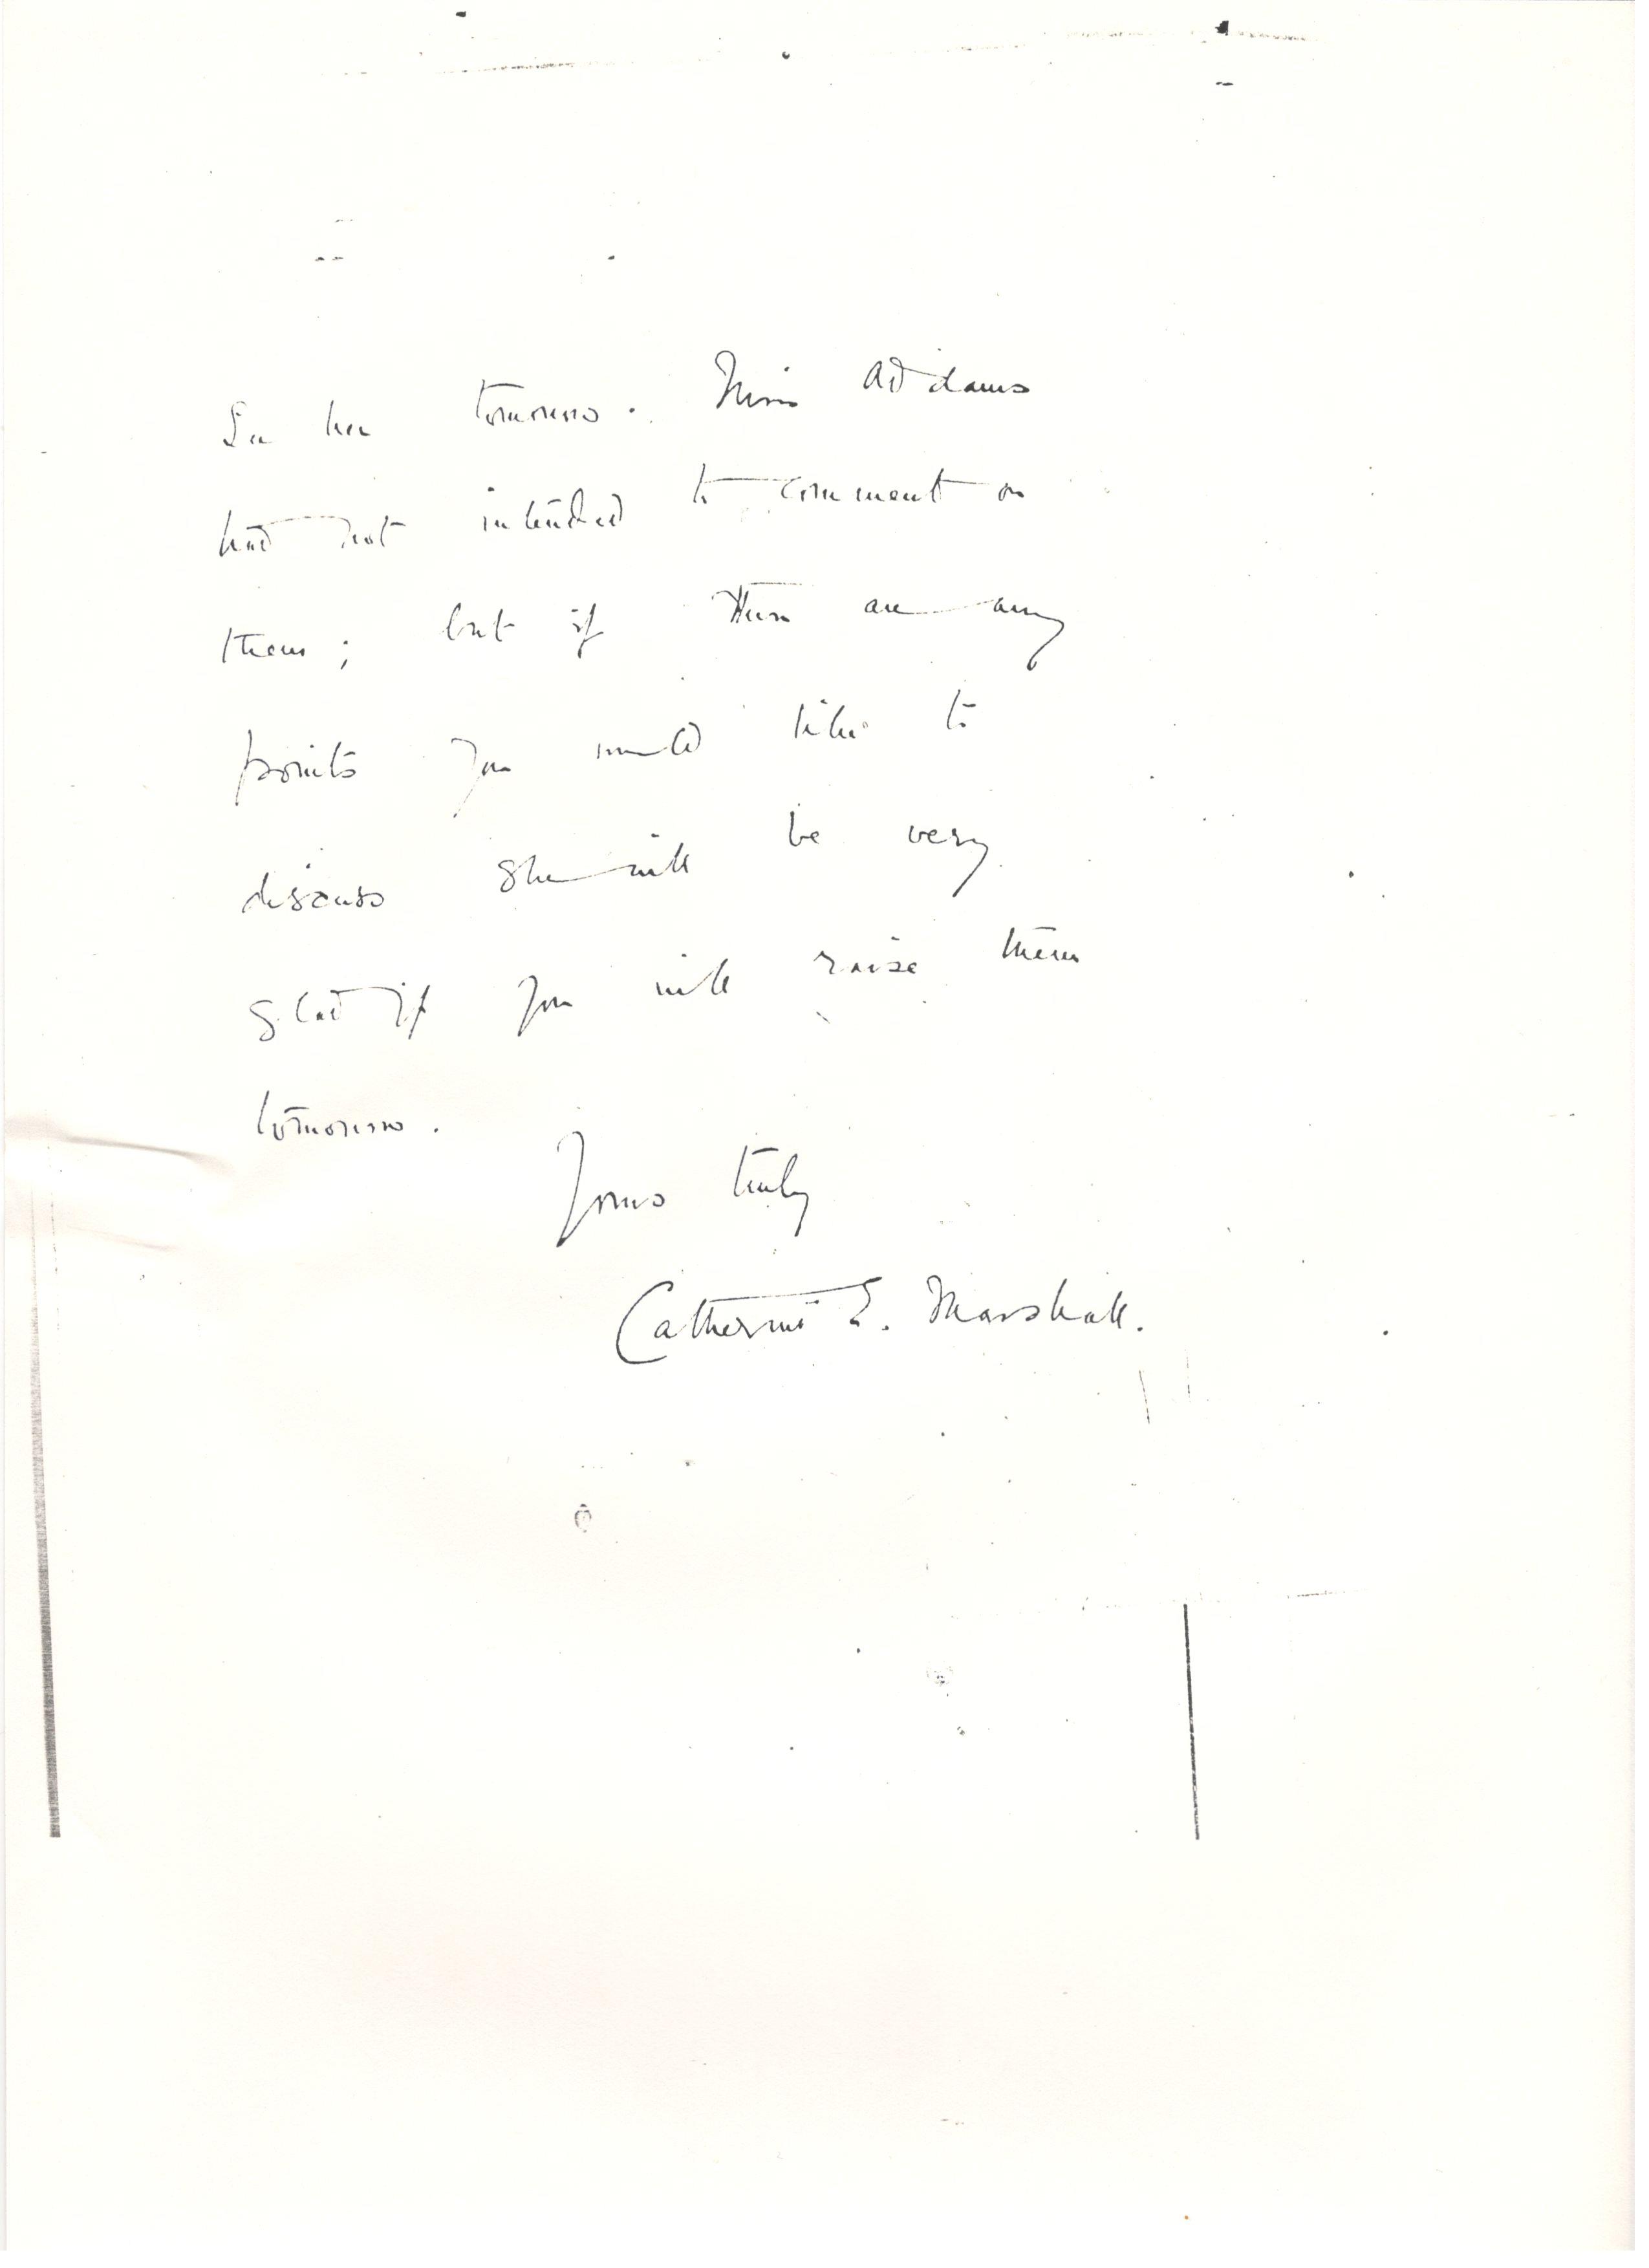 See her tomorrow. Miss Addams
had not intended to comment on
them; but if there are any
points you would like to
discuss she will be very
glad if you will raise them
tomorrow.
Yours truly
Catherine E. Marshall.